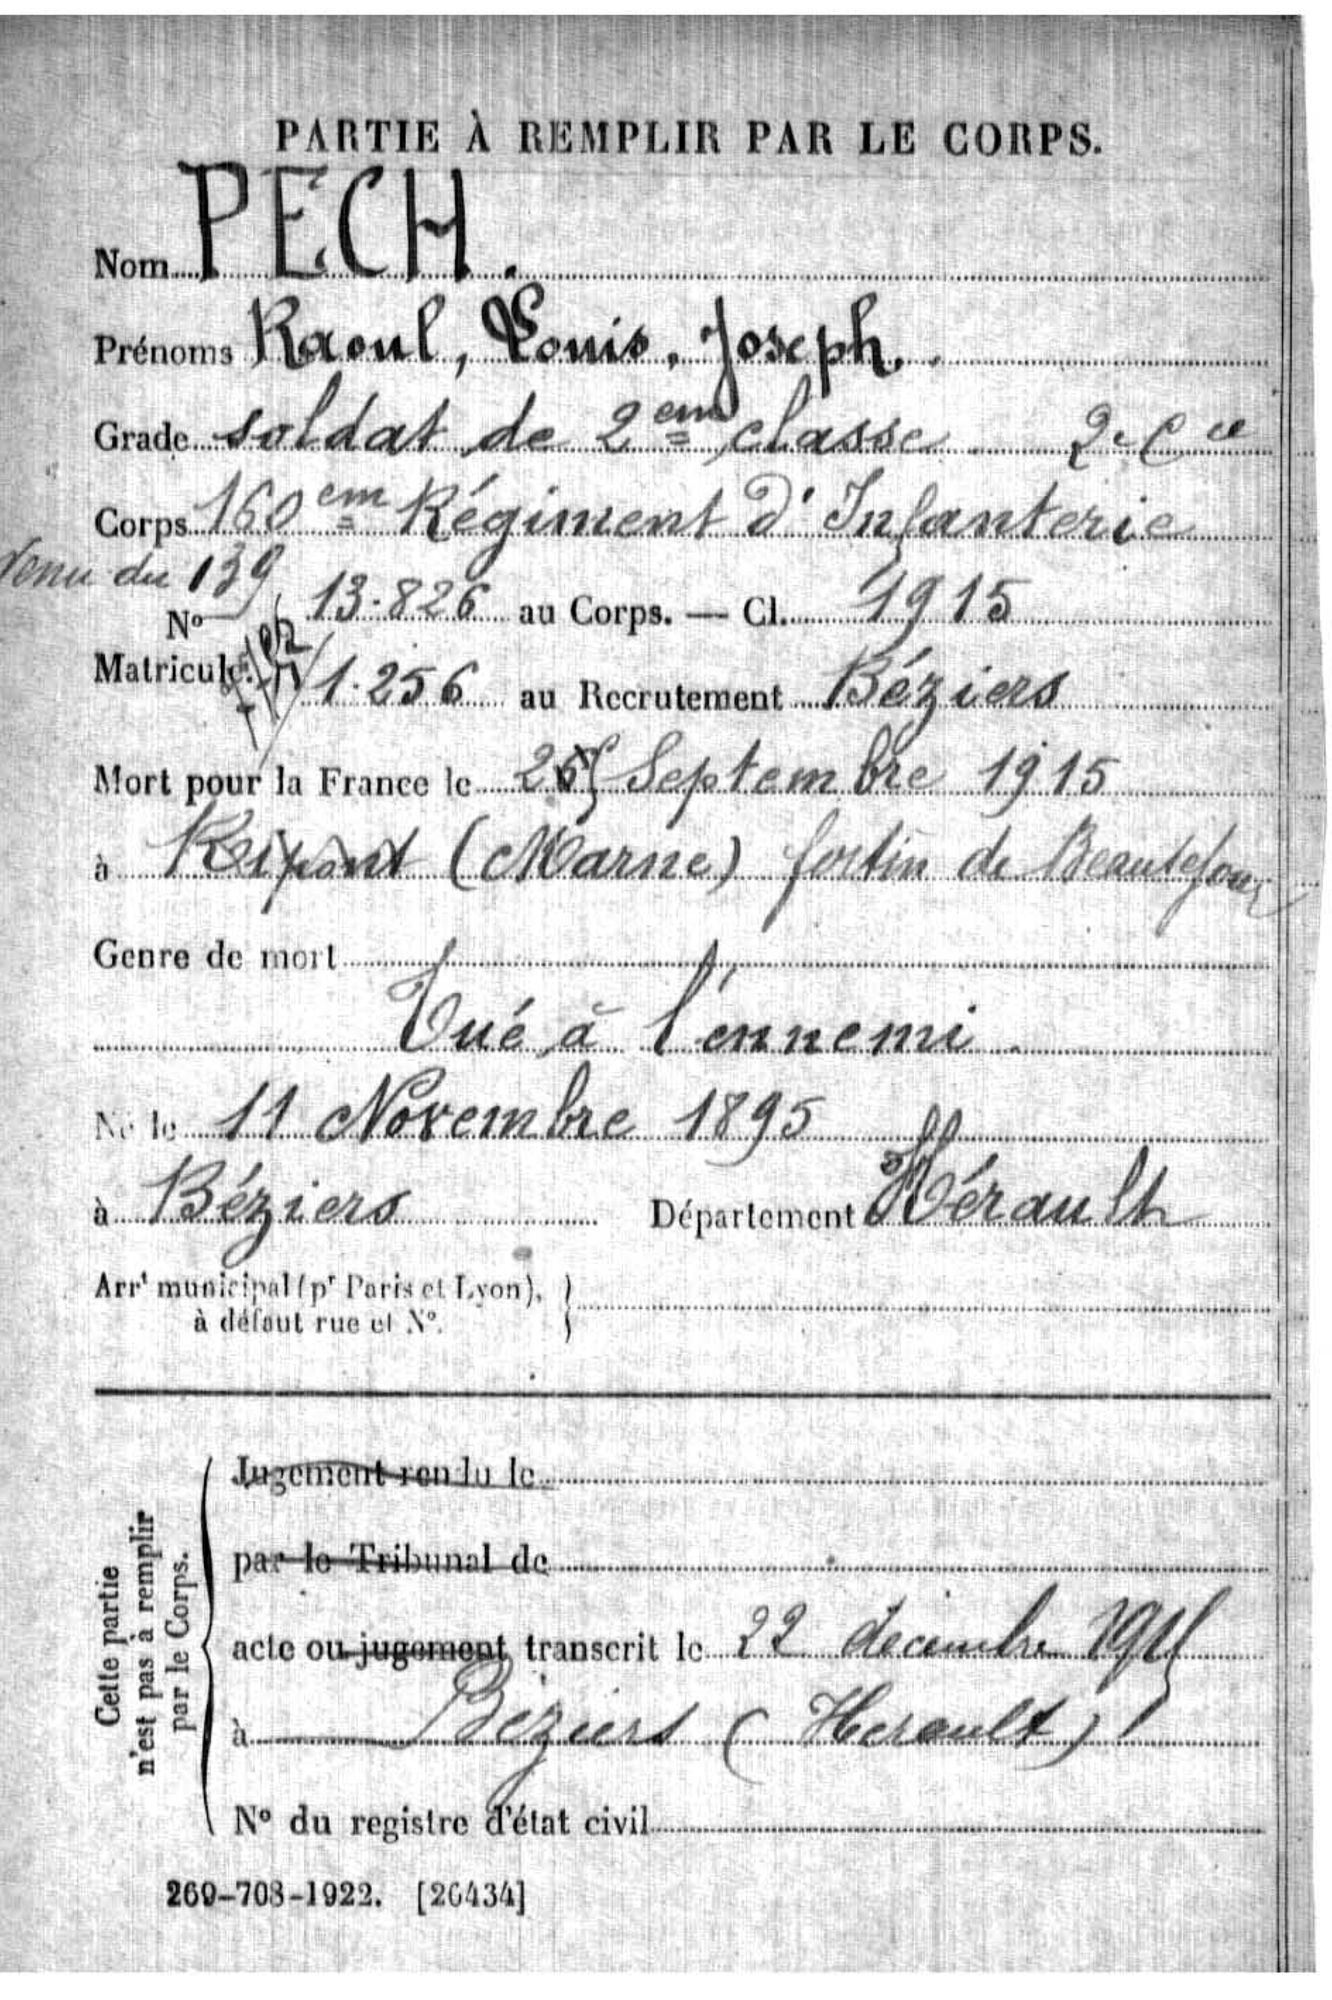 PARTIE À REMPLIR PAR LE CORPS.
Nom PECH.
Prénoms Raoul, Louis, Joseph.
Grade soldat de 2em classe 2e Cie
Corps 160em Régiment d'Infanterie
Venu du 139
No 13.826 au Corps. — Cl. 1915
Matricule. 1.256 au Recrutement Béziers
Mort pour la France le 25 Septembre 1915
à Ripont (Marne) fortin de Beauséjour
Genre de mort
Tué à l'ennemi.
Né le 11 Novembre 1895
à Béziers Département Hérault
Arrt municipal (pr Paris et Lyon),
à défaut rue et No.
Cette partie
n'est pas à remplir
par le Corps.
Jugement rendu le
par le Tribunal de
acte ou jugement transcrit le 22 decembre 1915
à Béziers (Herault)
No du registre d'état civil
269-708-1922. [26434]